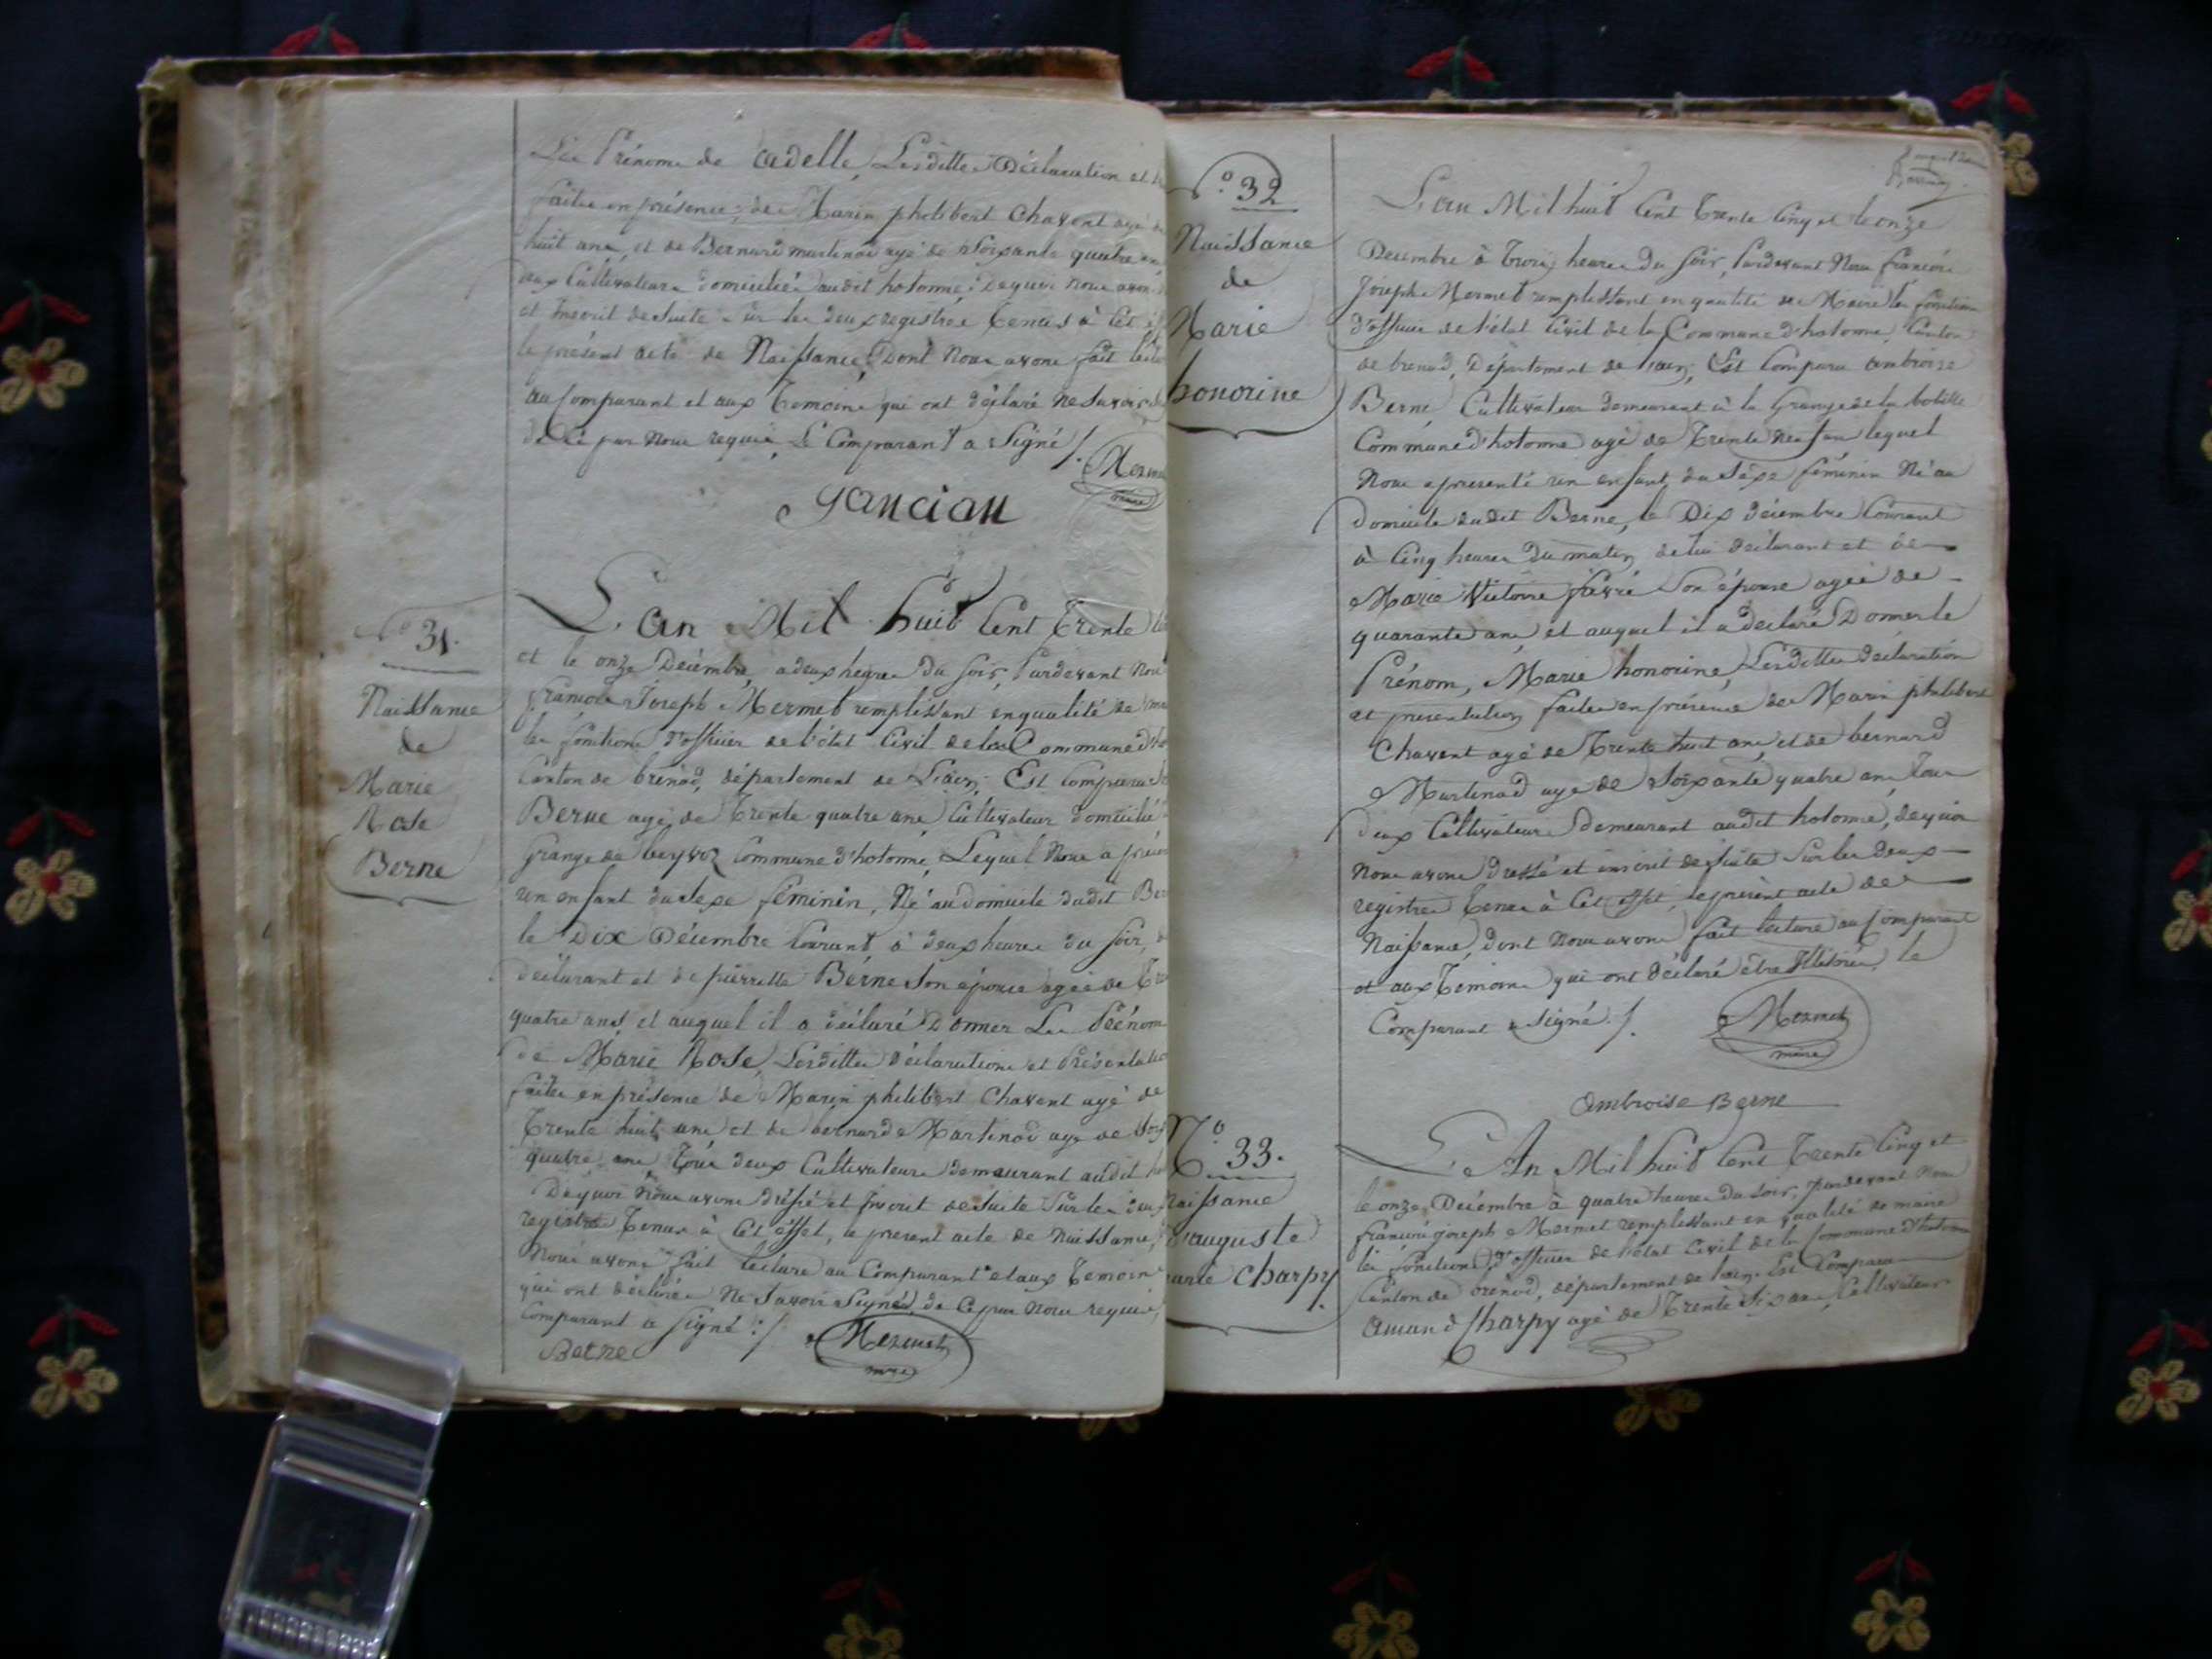 Les Prénoms de adelle, Lesdittes Déclaration et
faites en présence de Marin philibert Chavent agé de
huit ans, et de Bernard martinod agé de Soixante quatre ans
deux Cultivateurs domiciliés audit hotonne, Dequoi nous avons
et Inscrit desuite sur les deux registres tenus à Cet
le présent acte de Naissance, Dont Nous avons fait lecture
au Comparant et aux temoins qui ont déclaré ne Savoir
de Ce par Nous requis, Le Comparant a Signé /.
Mermet
maire
gancian
N.o 31.
Naissance
de
Marie
Rose
Berne
L'an Mil huit Cent trente
et le onze Décembre, a deux heures du Soir, Pardevant Nous
françois Joseph Mermet remplissant enqualité de
les fonctions d'officier de l'état Civil de la Commune d'ho
Canton de brénod, département de L'ain, Est Comparu
Berne agé de trente quatre ans Cultivateur domicilié
Grange de Commune d'hotonne, Lequel Nous a présen
un enfant du Sexe féminin, Né au domicile dudit Ber
le Dix Décembre Courant à deux heures du Soir,
déclarant et de pierrette Berne Son épouse agée de
quatre ans, et auquel il a déclaré Donner Les Prénoms
de Marie Rose, Lesdittes déclarations et Présentation
faites en présence de Marin philibert Chavent agé de
trente huit ans et de bernard Martinod agé de Soix
quatre ans, tous deux Cultivateurs demeurant audit ho
Dequoi Nous avons dréssé et Inscrit desuite Sur les deux
registres tenus à Cet éffet, le présent acte de Naissance,
Nous avons fait lecture au Comparant et aux temoins
qui ont déclarés Ne Savoir Signés, de Ce par Nous requis,
Comparant a Signé :/.
Berne
Mermet
maire
N.o 32
Naissance
de
Marie
honorine
L'an Mil huit Cent trente Cinq et le onze
Décembre à trois heures du Soir, Pardevant Nous françois
Joseph Mermet remplissant en qualité de Maire les fonctions
d'officier de l'état Civil de la Commune d'hotonne, Canton
de brenod, Département de l'ain, Est Comparu ambroise
Berne Cultivateur demeurant à la Grange de la
Commune d'hotonne agé de trente neuf ans lequel
Nous a présenté un enfant du Sexe féminin Né au
domicile dudit Berne, le Dix décembre Courant
à Cinq heures du matin de lui déclarant et de
Marie Victoire favre Son épouse agée de
quarante ans, et auquel il a déclaré Donner le
Prénom, Marie honorine, Lesdittes déclaration
et présentation faites en présence de Marin philibert
Chavent agé de trente huit ans, et de bernard
Martinod agé de Soixante quatre ans, tous
deux Cultivateurs demeurant audit hotonne, dequoi
Nous avons dressé et inscrit desuite Sur les deux
registres tenus à Cet effet, le présent acte de
Naissance, dont Nous avons fait lecture au Comparant
et aux temoins qui ont déclaré être Illitérés, le
Comparant a signé. /.
Mermet
maire
ambroise Berne
N.o 33.
naissance
d'auguste
Charpy
L'An Mil huit Cent trente Cinq et
le onze Décembre à quatre heures du Soir, pardevant Nous
françois joseph Mermet remplissant en qualité de maire
les fonctions d'officier de l'état Civil de la Commune d'hotonne
Canton de brénod, département de l'ain, Est Comparu
amand Charpy agé de trente Six ans, Cultivateur